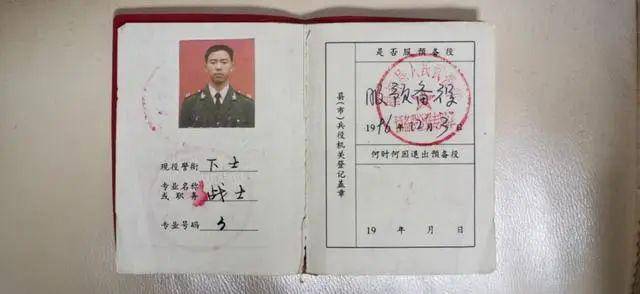 现役警衔 下士
专业名称
或职务 战士
专业号码
县(市)兵役机关登记盖章
是否服预备役
服预备役
1996年12月
何时何因退出预备役
19 年 月 日